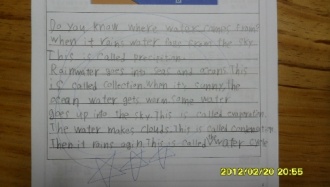 Do you know where water comes from?
When it rains water goes from the sky.
This is called
Rainwater goes into seas and oceans. This
is called collection. When it's sunny, the
ocean water gets warm. Some water
goes up into the sky. This is called
The water makes clouds. This is called
Then it rains again. This is called water cycle
2012/02/20 20:55